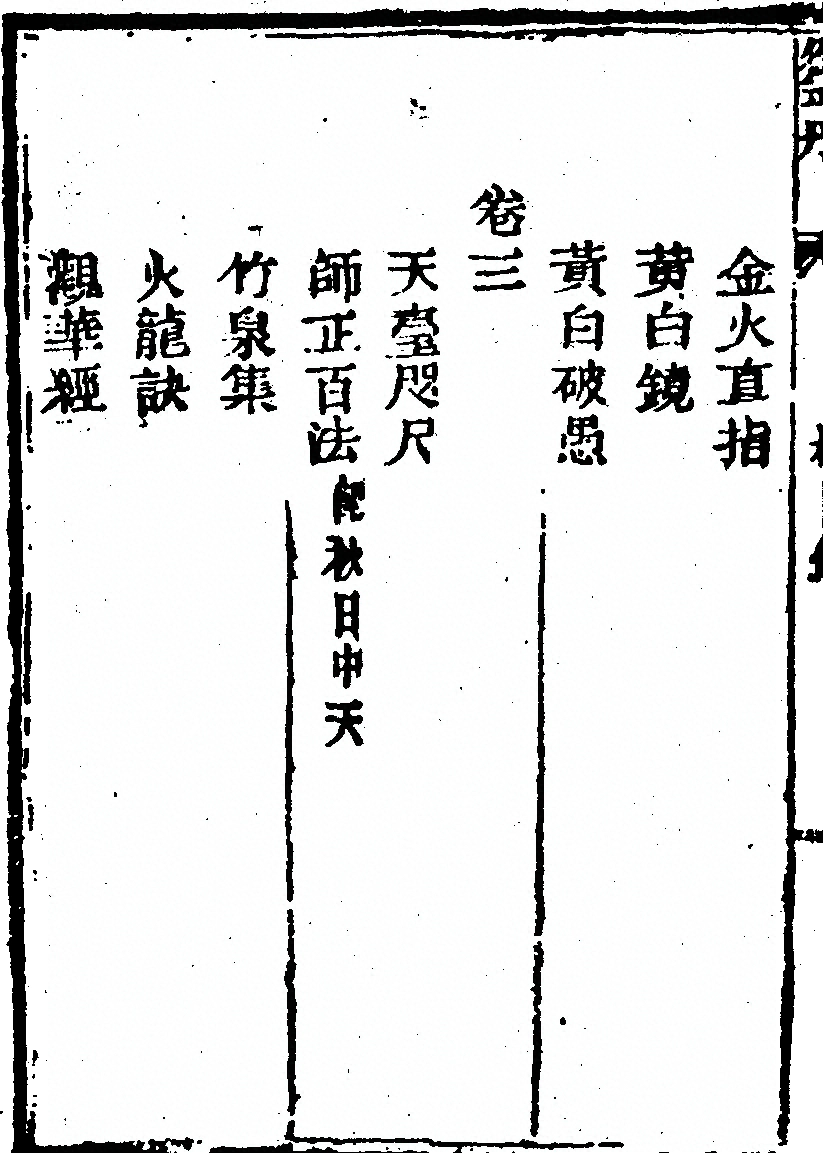 金火直指
黄白鏡
黃白破愚
卷三
天臺咫尺
師正百法 配秋日中天
竹泉集
火龍訣
觀華經